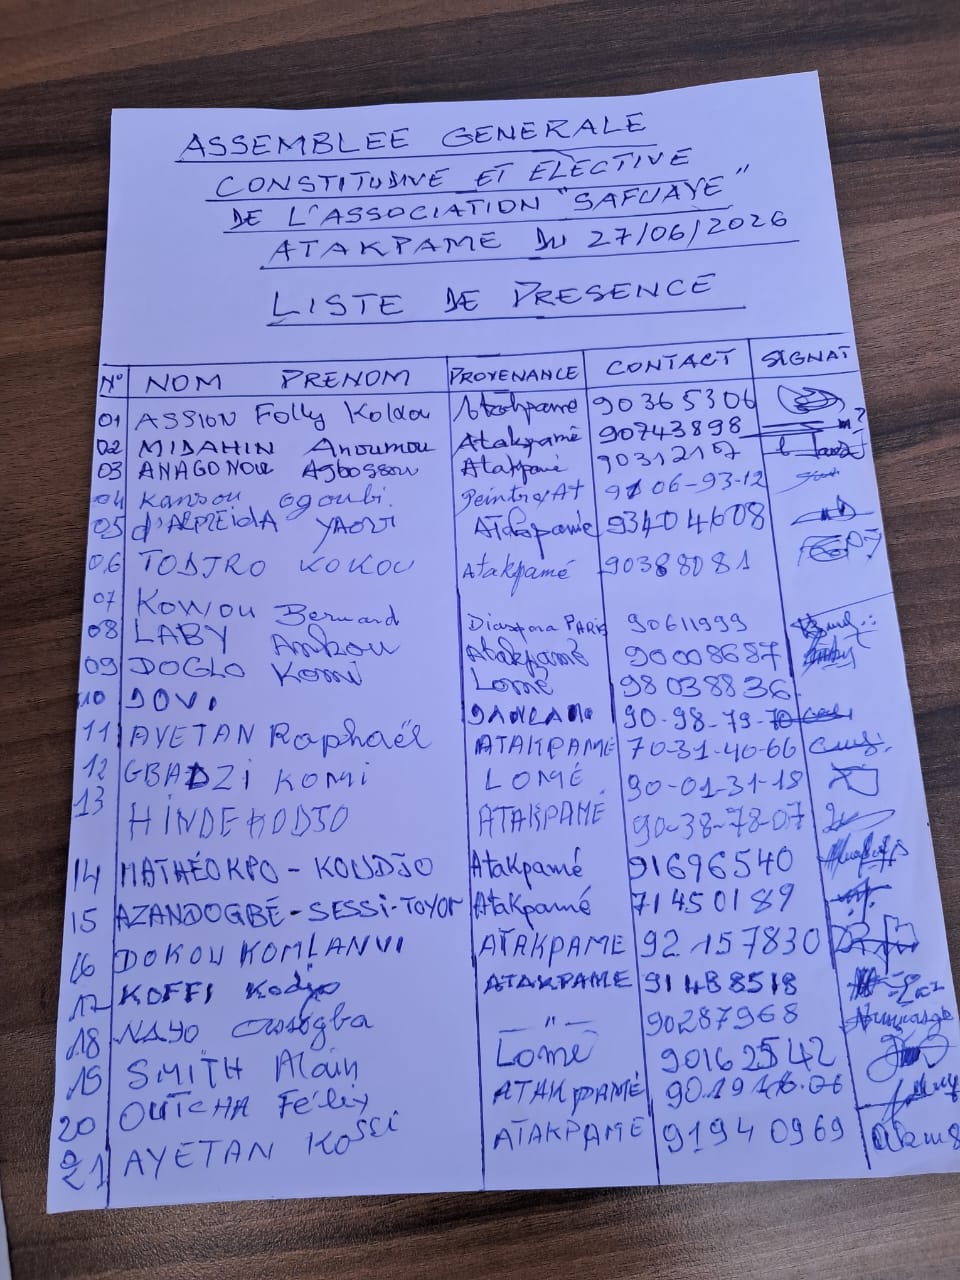 ASSEMBLEE GENERALE
CONSTITUDIVE ET ELECTIVE
DE L'ASSOCIATION "SAFUAYE"
ATAKPAME DU 27/06/2026
LISTE DE PRESENCE
N° NOM PRENOM PROVENANCE CONTACT SIGNAT
01 ASSION Folly Kokou Atakpamé 90365306
02 MIDAHIN Anoumou Atakpamé 90743898
03 ANAGONOU Agbossou Atakpamé 90312167
04 Kansou Ogoubi Peintre/At 9106-93-12
05 d'ALMEIDA YAOVI Atakpamé 93404608
06 TODJRO KOKOU Atakpamé 90388081
07 KOWOU Bernard Diaspora PARIS 90611999
08 LABY Ankou Atakpamé 90008687
09 DOGLO Komi Lomé 98038836
10 DOVI 90-98-79-70
11 AYETAN Raphaël ATAKPAMÉ 70-31-40-66
12 GBADZI KOMI LOMÉ 90-01-31-18
13 HINDE KODJO ATAKPAMÉ 90-38-78-07
14 MATHÉOKPO - KOUDJO Atakpamé 91696540
15 AZANDOGBÉ - SESSI-TOYOI Atakpamé 71450189
16 DOKOU KOMLANVI ATAKPAME 92157830
17 KOFFI Kodjo ATAKPAME 91488518
18 NAYO -"- 90287968
19 SMITH Alain Lomé 90162542
20 OUTCHA Félix ATAKPAMÉ 90.19.46.06
21 AYETAN KOSSI ATAKPAME 91940969